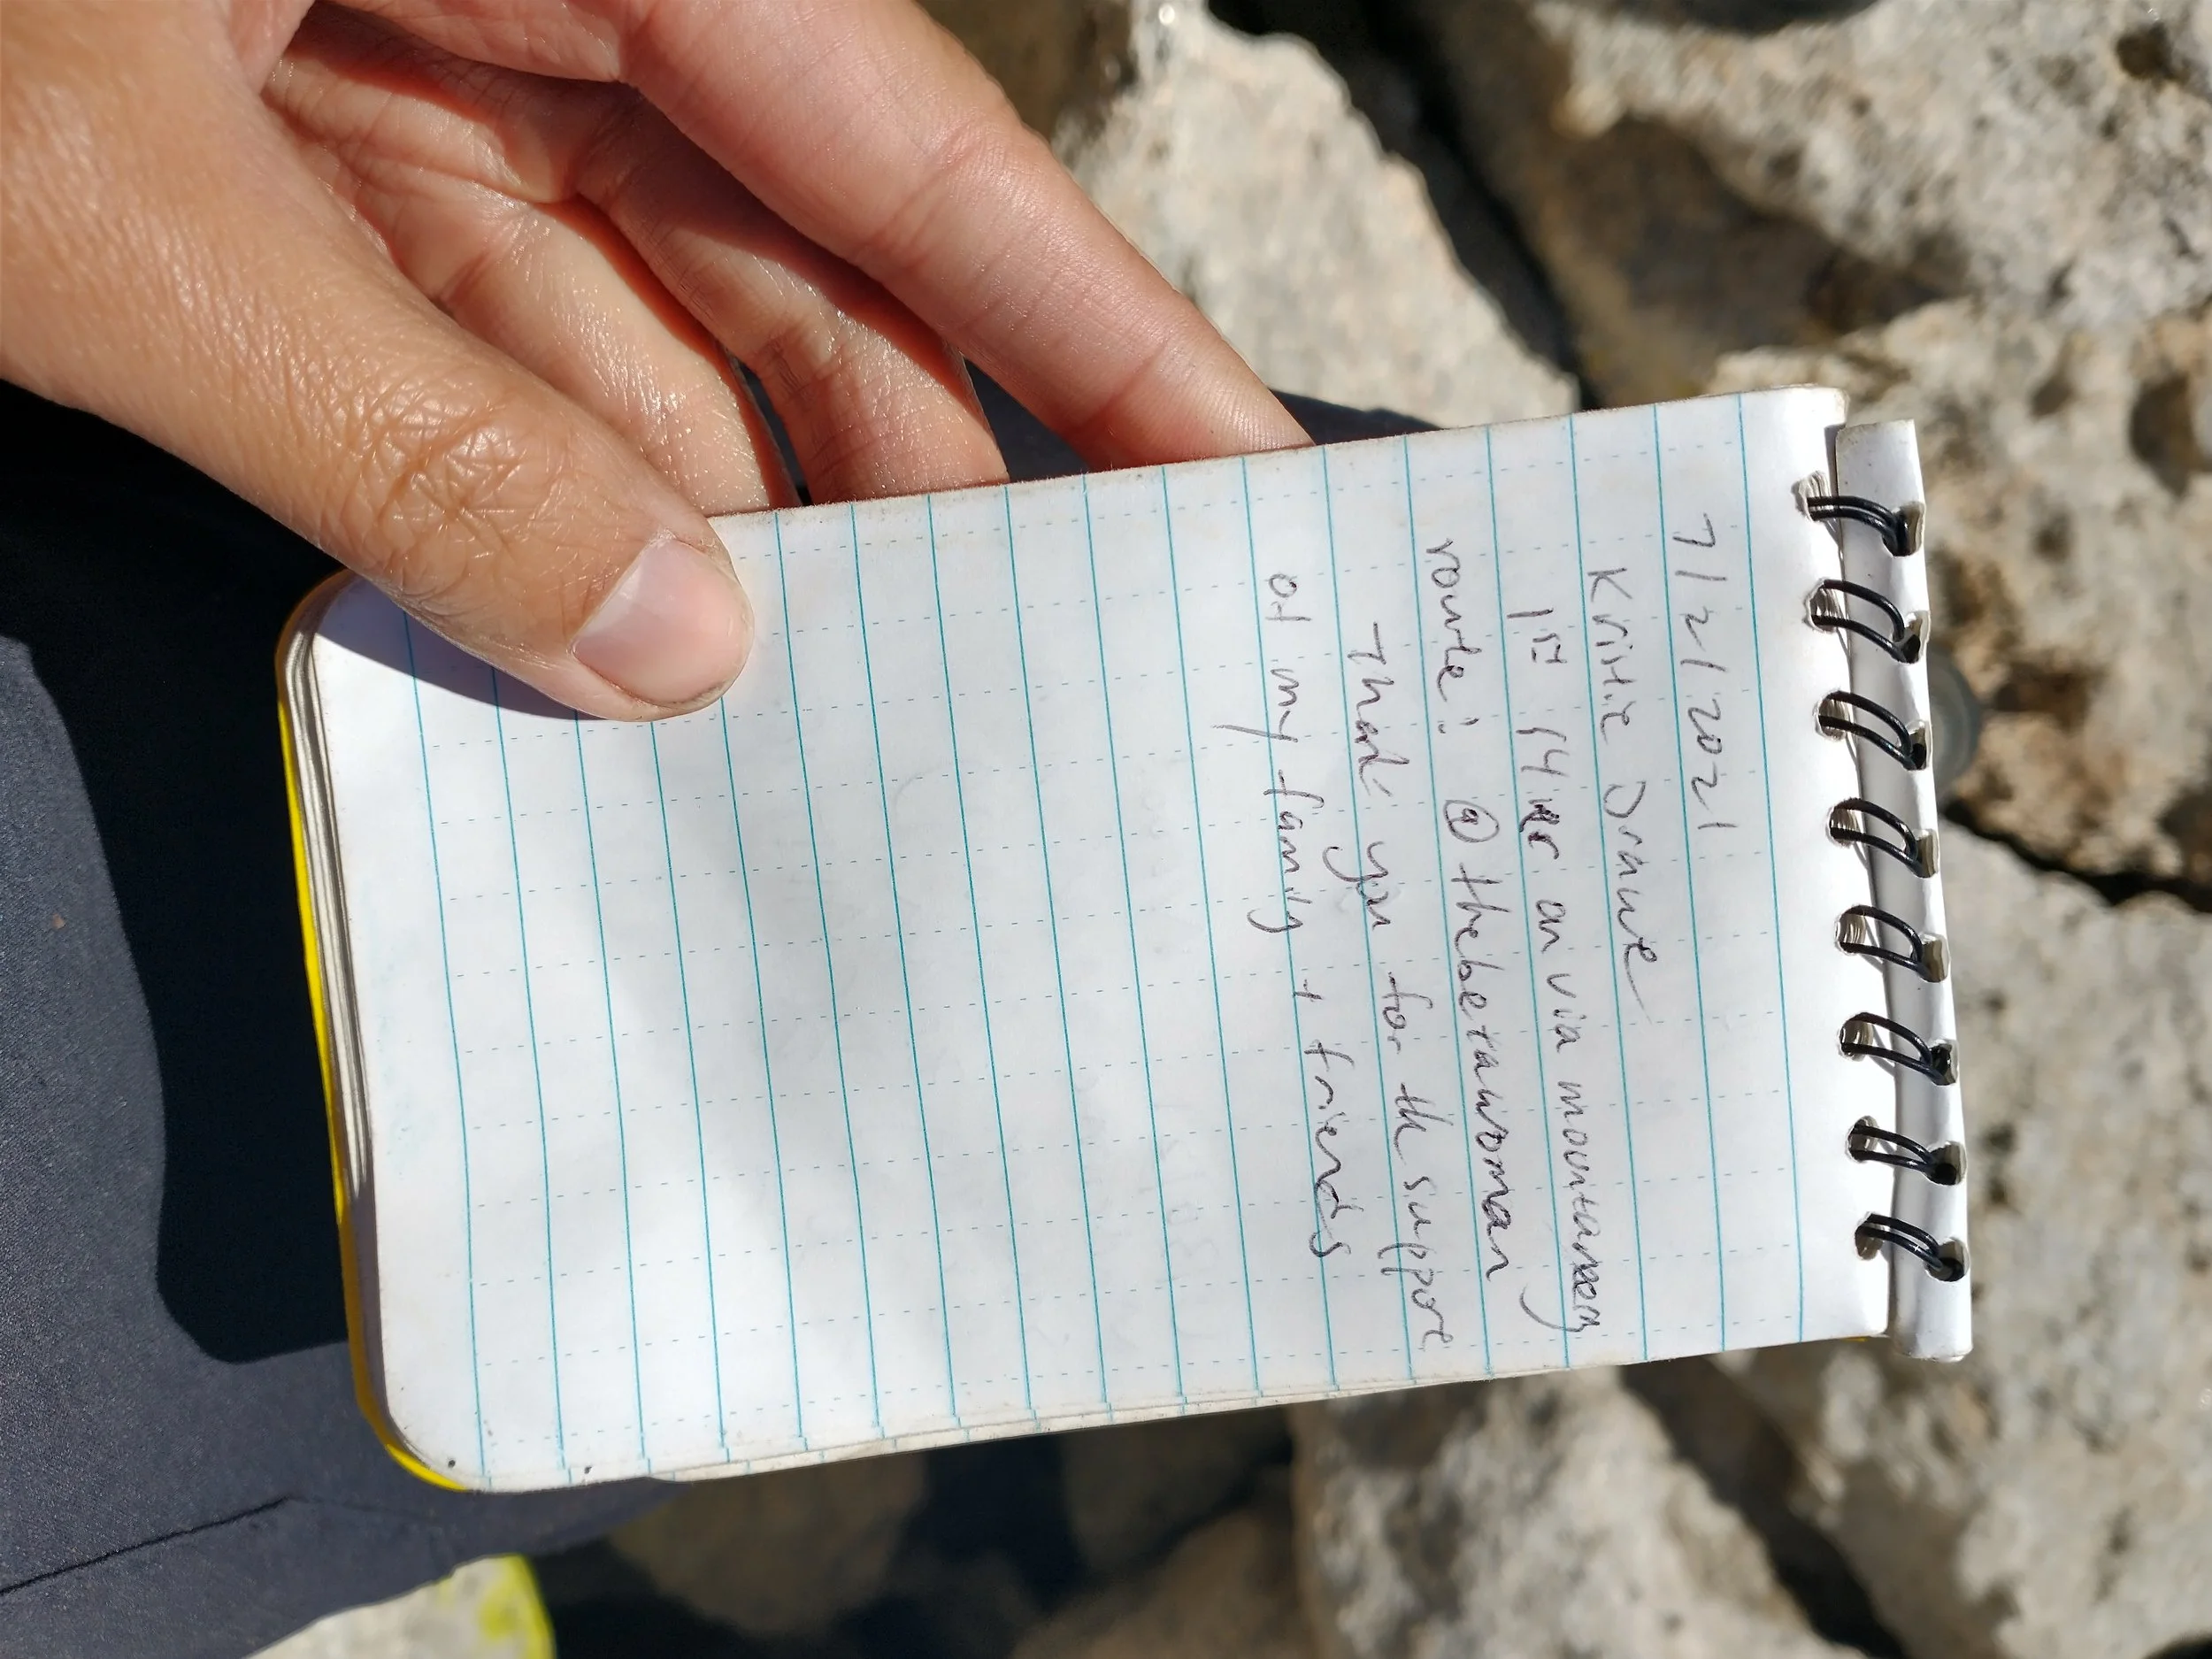 7/21/2021
Kristie
1st 14er on via mountaineers
route! @thebetawoman
Thank you for the support
of my family + friends